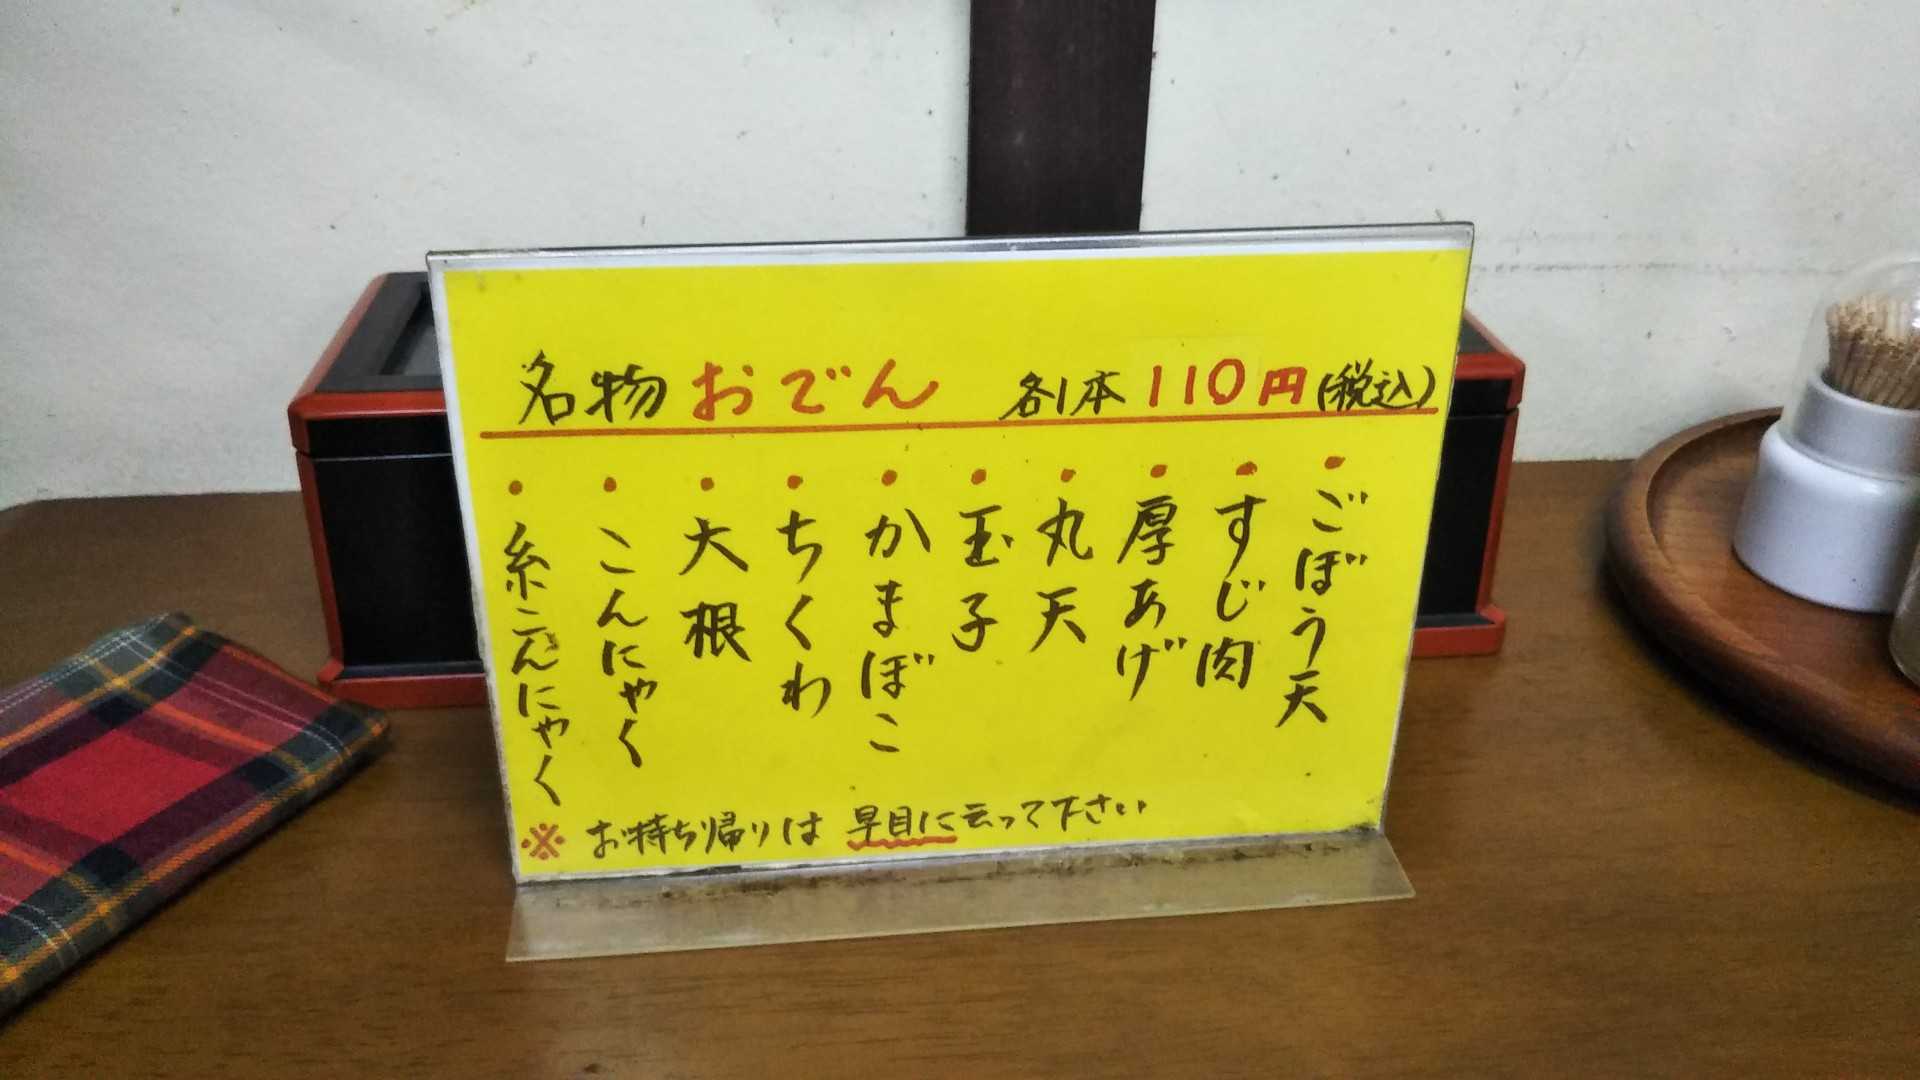 名物 おでん 各1本 110円(税込)
・ごぼう天
・すじ肉
・厚あげ
・丸天
・玉子
・かまぼこ
・ちくわ
・大根
・こんにゃく
・糸こんにゃく
※ お持ち帰りは 早目に云って下さい